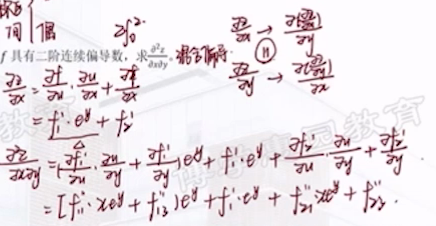 间 偶
f 具有二阶连续偏导数，求∂²z/∂x∂y。混合偏导 ∂z/∂x → ∂(∂z/∂x)/∂y
∂z/∂y → ∂(∂z/∂y)/∂x
∂z/∂x = ∂f/∂u · ∂u/∂x + ∂f/∂x
= f₁' · eʸ + f₂'
∂²z/∂x∂y = (∂f₁'/∂u · ∂u/∂y + ∂f₁'/∂y) eʸ + f₁' · eʸ + ∂f₂'/∂u · ∂u/∂y + ∂f₂'/∂y .
= [f₁₁'' · xeʸ + f₁₃''] eʸ + f₁' · eʸ + f₂₁'' · xeʸ + f₂₃'' .